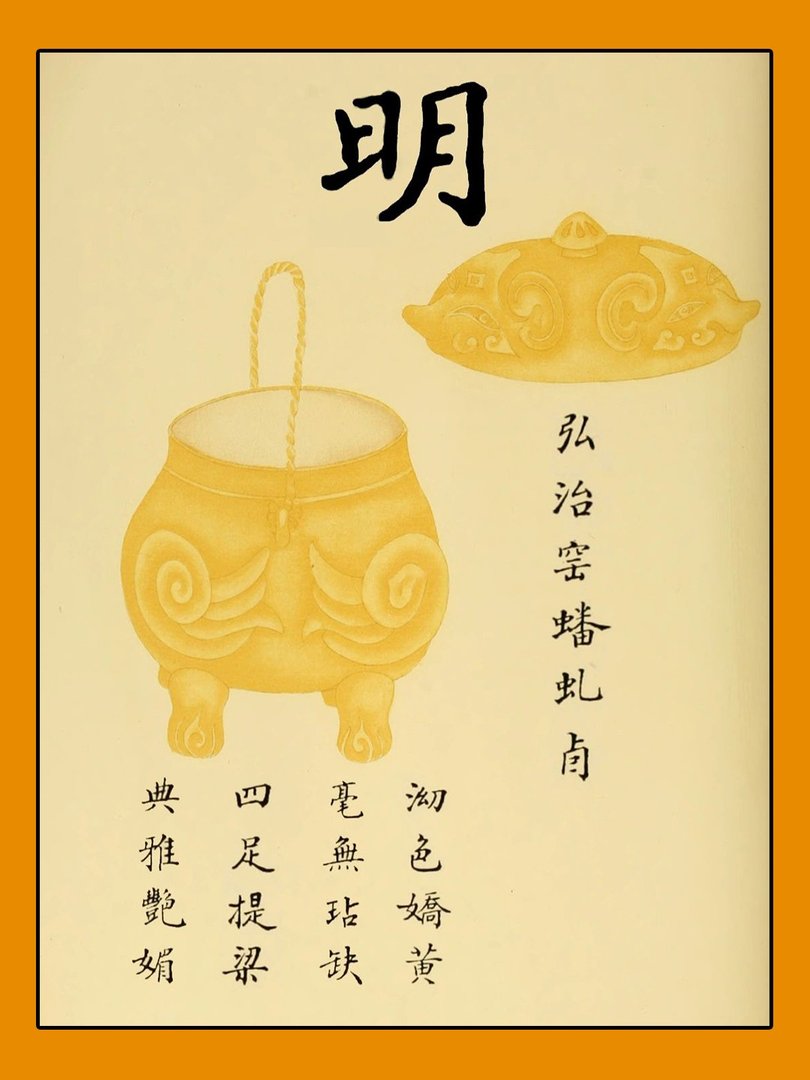 明
弘治窑蟠虬卣
泑色嬌黃
毫無玷缺
四足提梁
典雅艷媚